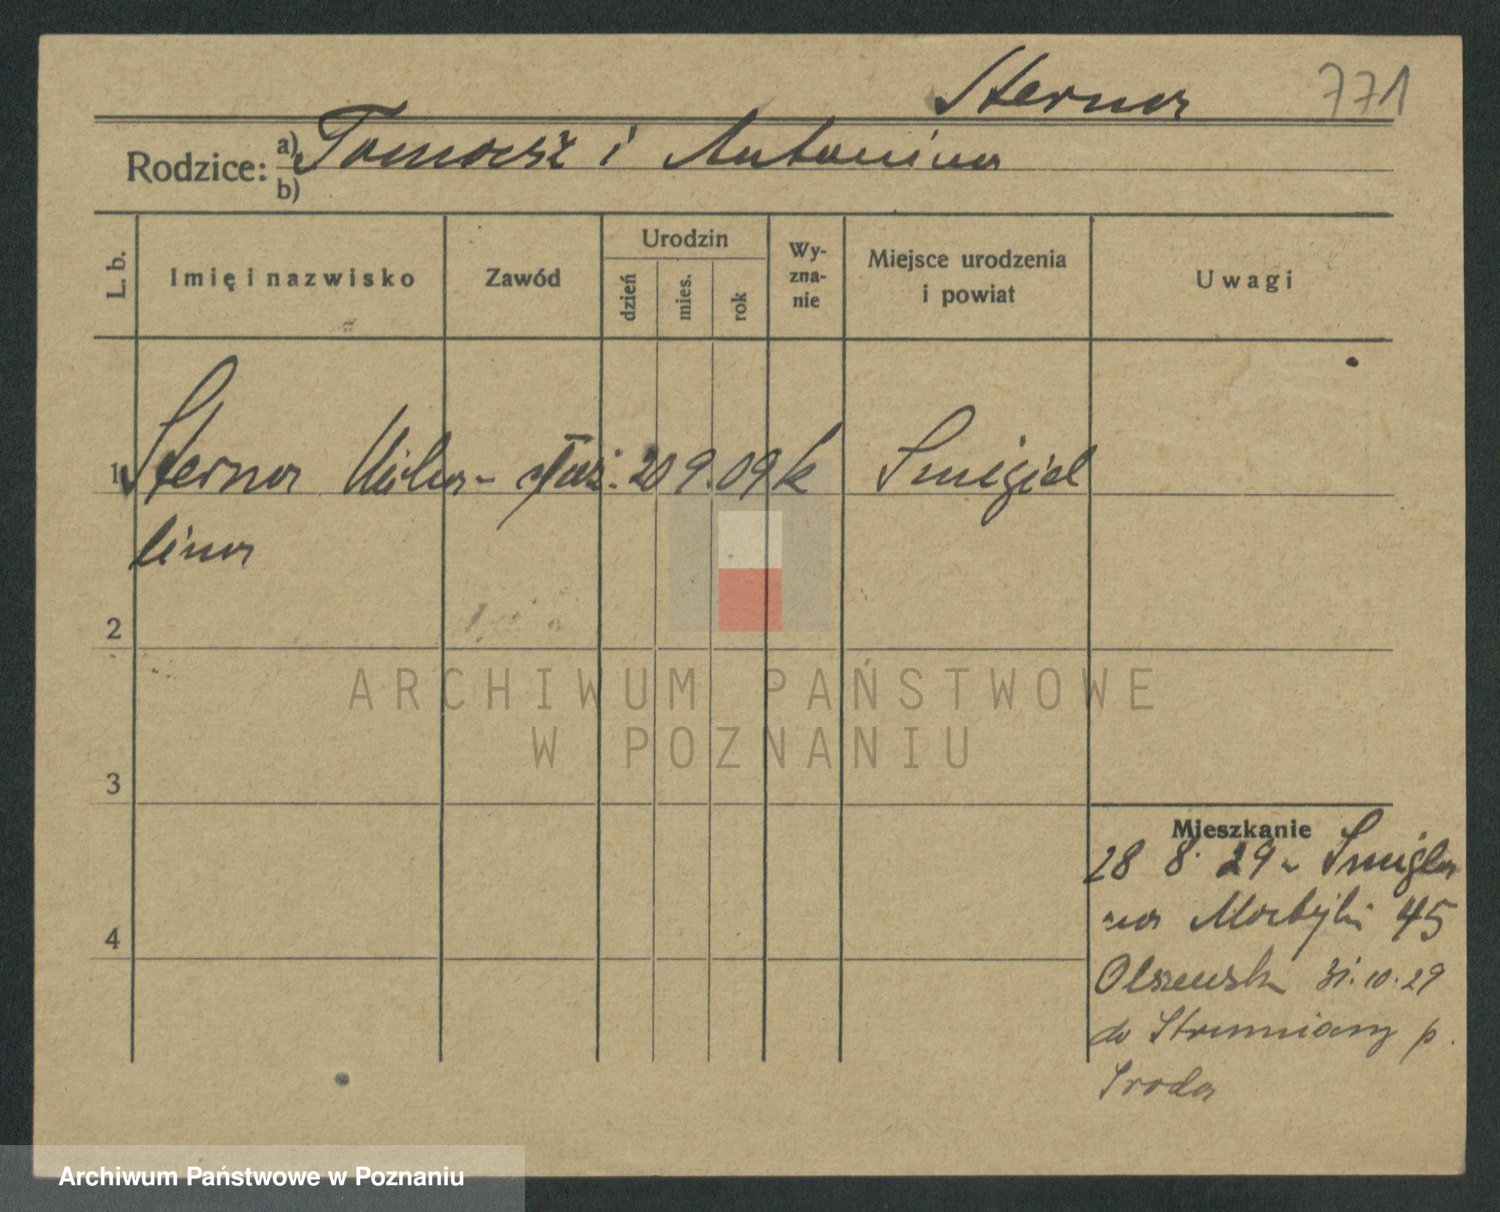 Sterna 771
Rodzice: a) Tomasz i Antonina
b)
L. b.
Imię i nazwisko
Zawód
Urodzin
dzień
mies.
rok
Wy-
zna-
nie
Miejsce urodzenia
i powiat
Uwagi
1 Sterna Micha- służ. 20 9. 09 k Smigiel
lina
2
3
4
Mieszkanie
28 8. 29 Smigla
na 45
Olszewski 31.10.29
do Strumiany p.
Sroda
ARCHIWUM PAŃSTWOWE
W POZNANIU
Archiwum Państwowe w Poznaniu